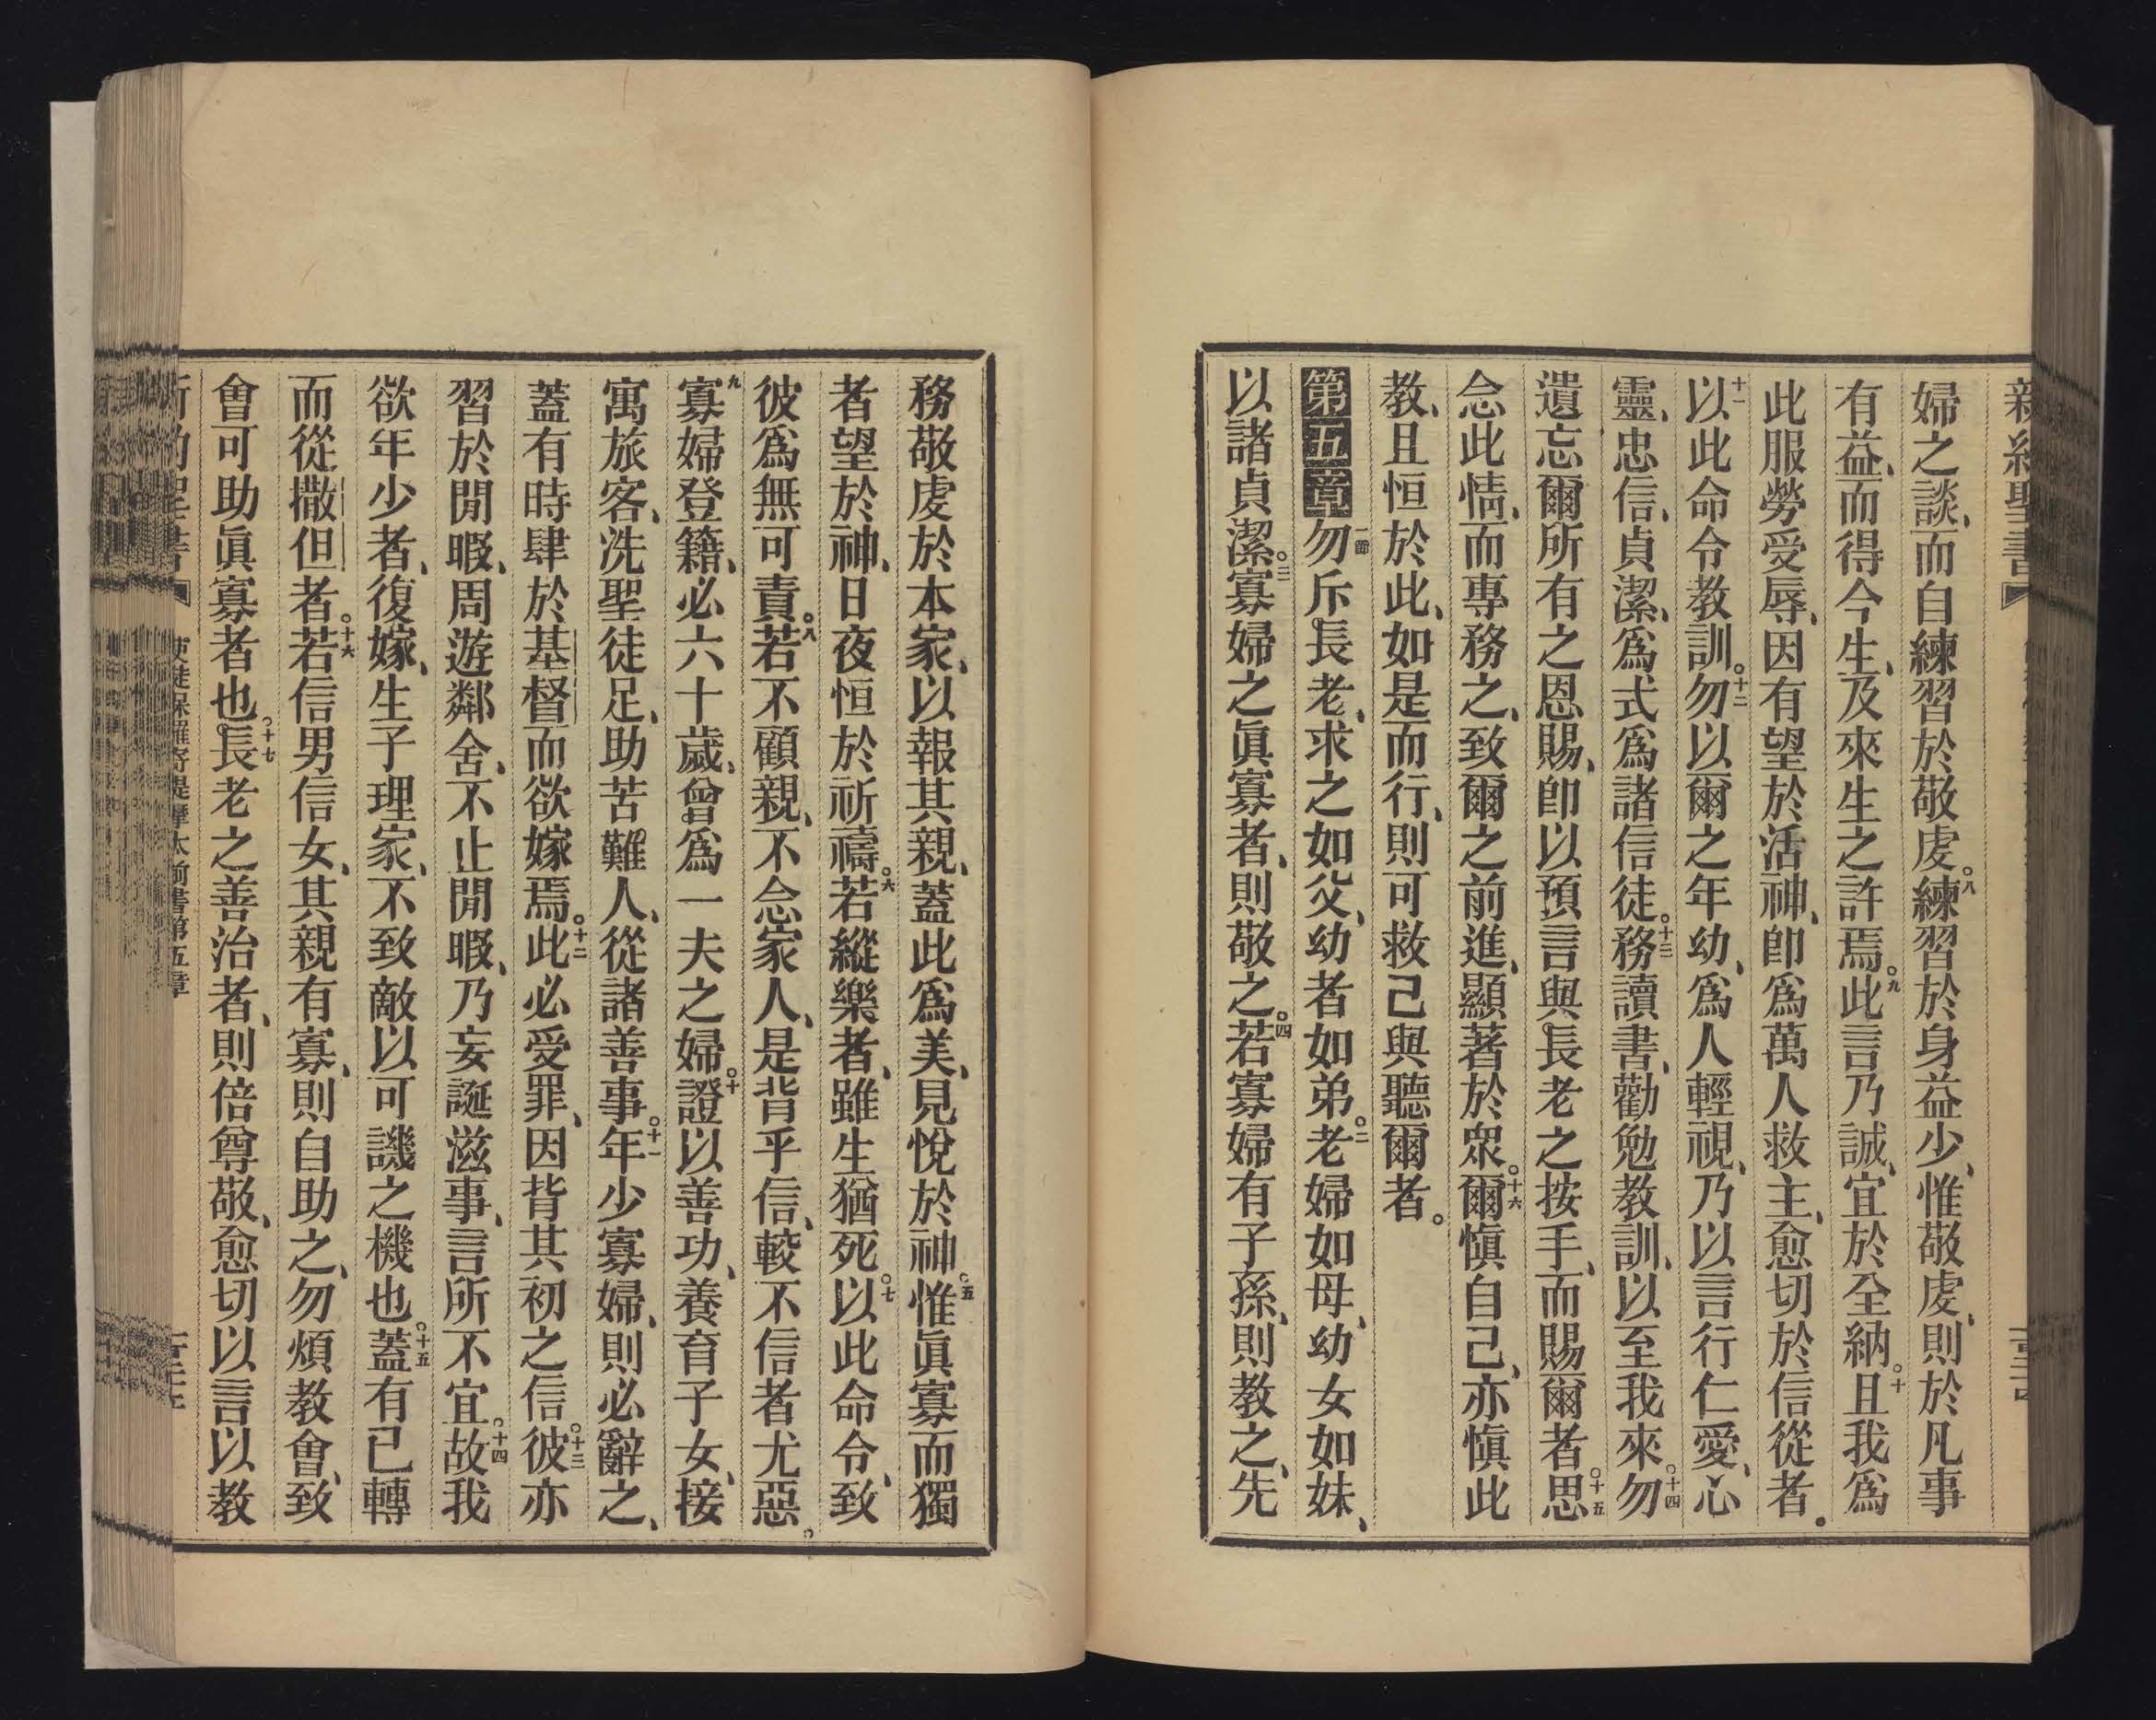 新約聖書
婦之談、而自練習於敬虔。八練習於身益少、惟敬虔、則於凡事
有益、而得今生、及來生之許焉。九此言乃誠、宜於全納。十且我爲
此服勞受辱、因有望於活神、卽爲萬人救主、愈切於信從者。
十一以此命令教訓。十二勿以爾之年幼、爲人輕視、乃以言行仁愛、心
靈、忠信、貞潔、爲式爲諸信徒。十三務讀書、勸勉教訓、以至我來。十四勿
遺忘爾所有之恩賜、卽以預言與長老之按手、而賜爾者。十五思
念此情、而專務之、致爾之前進、顯著於眾。十六爾愼自己、亦愼此
教、且恒於此、如是而行、則可救己與聽爾者。
第五章一節勿斥長老、求之如父、幼者如弟。二老婦如母、幼女如妹、
以諸貞潔。三寡婦之眞寡者、則敬之。四若寡婦有子孫、則教之、先
務敬虔於本家、以報其親、蓋此爲美、見悅於神。五惟眞寡而獨
者望於神、日夜恒於祈禱。六若縱樂者、雖生猶死。七以此命令、致
彼爲無可責。八若不顧親、不念家人、是背乎信、較不信者尤惡。
九寡婦登籍、必六十歲、曾爲一夫之婦。十證以善功、養育子女、接
寓旅客、洗聖徒足、助苦難人、從諸善事。十一年少寡婦、則必辭之、
蓋有時肆於基督而欲嫁焉。十二此必受罪、因背其初之信。十三彼亦
習於閒暇、周遊鄰舍、不止閒暇、乃妄誕滋事、言所不宜。十四故我
欲年少者、復嫁、生子理家、不致敵以可譏之機也。十五蓋有已轉
而從撒但者。十六若信男信女、其親有寡、則自助之、勿煩教會、致
會可助眞寡者也。十七長老之善治者、則倍尊敬、愈切以言以教
新約聖書 使徒保羅寄提摩太前書第五章